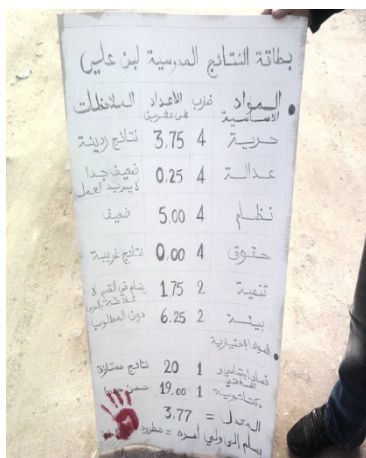 بطاقة النتائج المدرسية لبن علي
المواد الأساسية ضارب الأعداد على عشرين الملاحظات
حرية 4 3,75 نتائج رديئة
عدالة 4 0,25 ضعيف جدا لا يريد العمل
نظام 4 5,00 ضعيف
حقوق 4 0,00 نتائج غريبة
تنمية 2 1,75 ينام في القسم لا
بيئة 2 6,25 دون المطلوب
المواد الاختيارية
فساد 1 20 نتائج ممتازة
دكتاتورية 1 19,00
المعدل = 3,77
يسلم إلى ولي أمره = مطرود